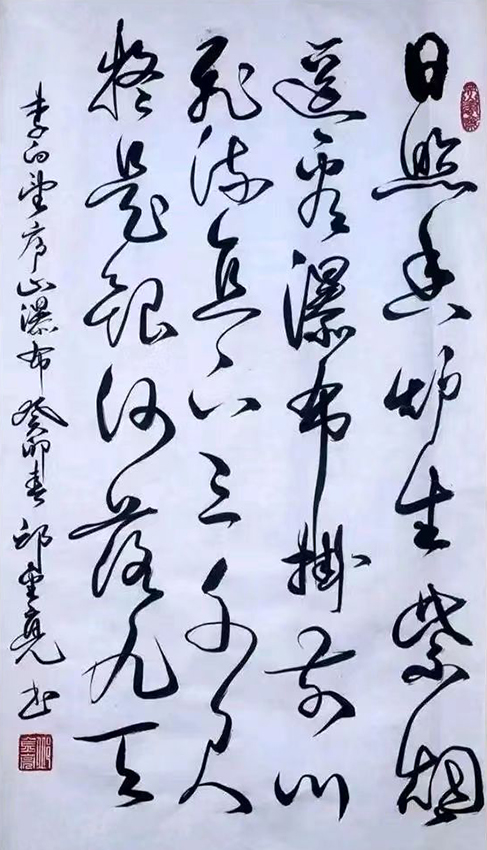 日照香炉生紫烟
遥看瀑布掛前川
飞流直下三千尺
疑是银河落九天
李白望庐山瀑布 癸卯春 邱 亮书